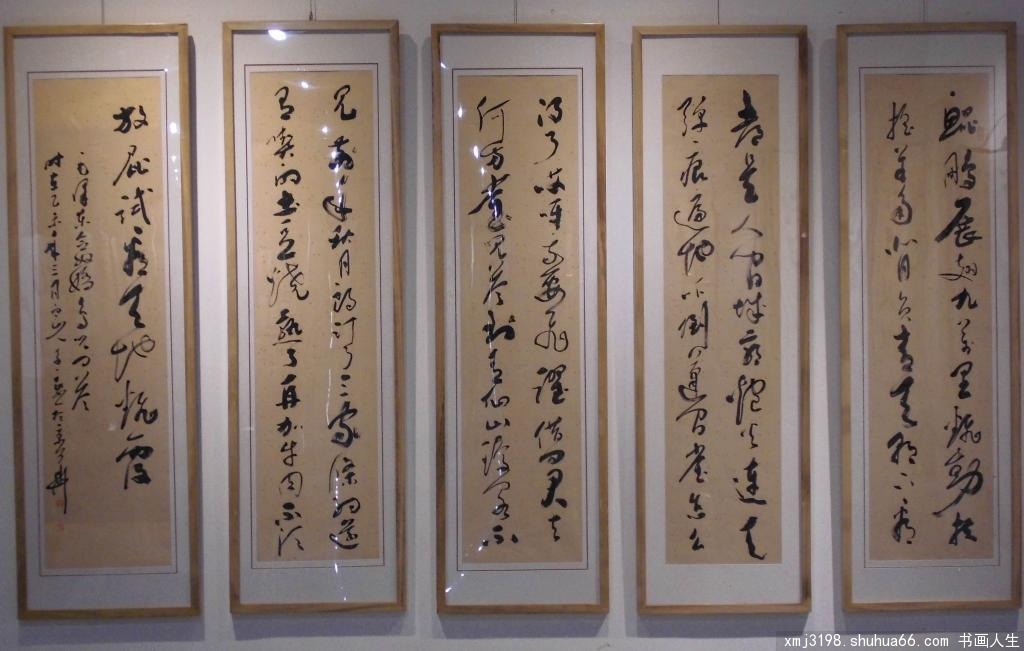 鲲鹏展翅九万里翻动扶
摇羊角背负青天朝下看
都是人间城郭炮火连天
弹痕遍地吓倒蓬间雀怎么
得了哎呀我要飞跃借问君去
何方雀儿答道有仙山琼阁不
见前年秋月朗订了三家条约还
有喫的土豆烧熟了再加牛肉不须
放屁试看天地翻覆
毛泽东念奴娇鸟儿问答
时在乙未年三月
xmj3198.shuhua66.com 书画人生